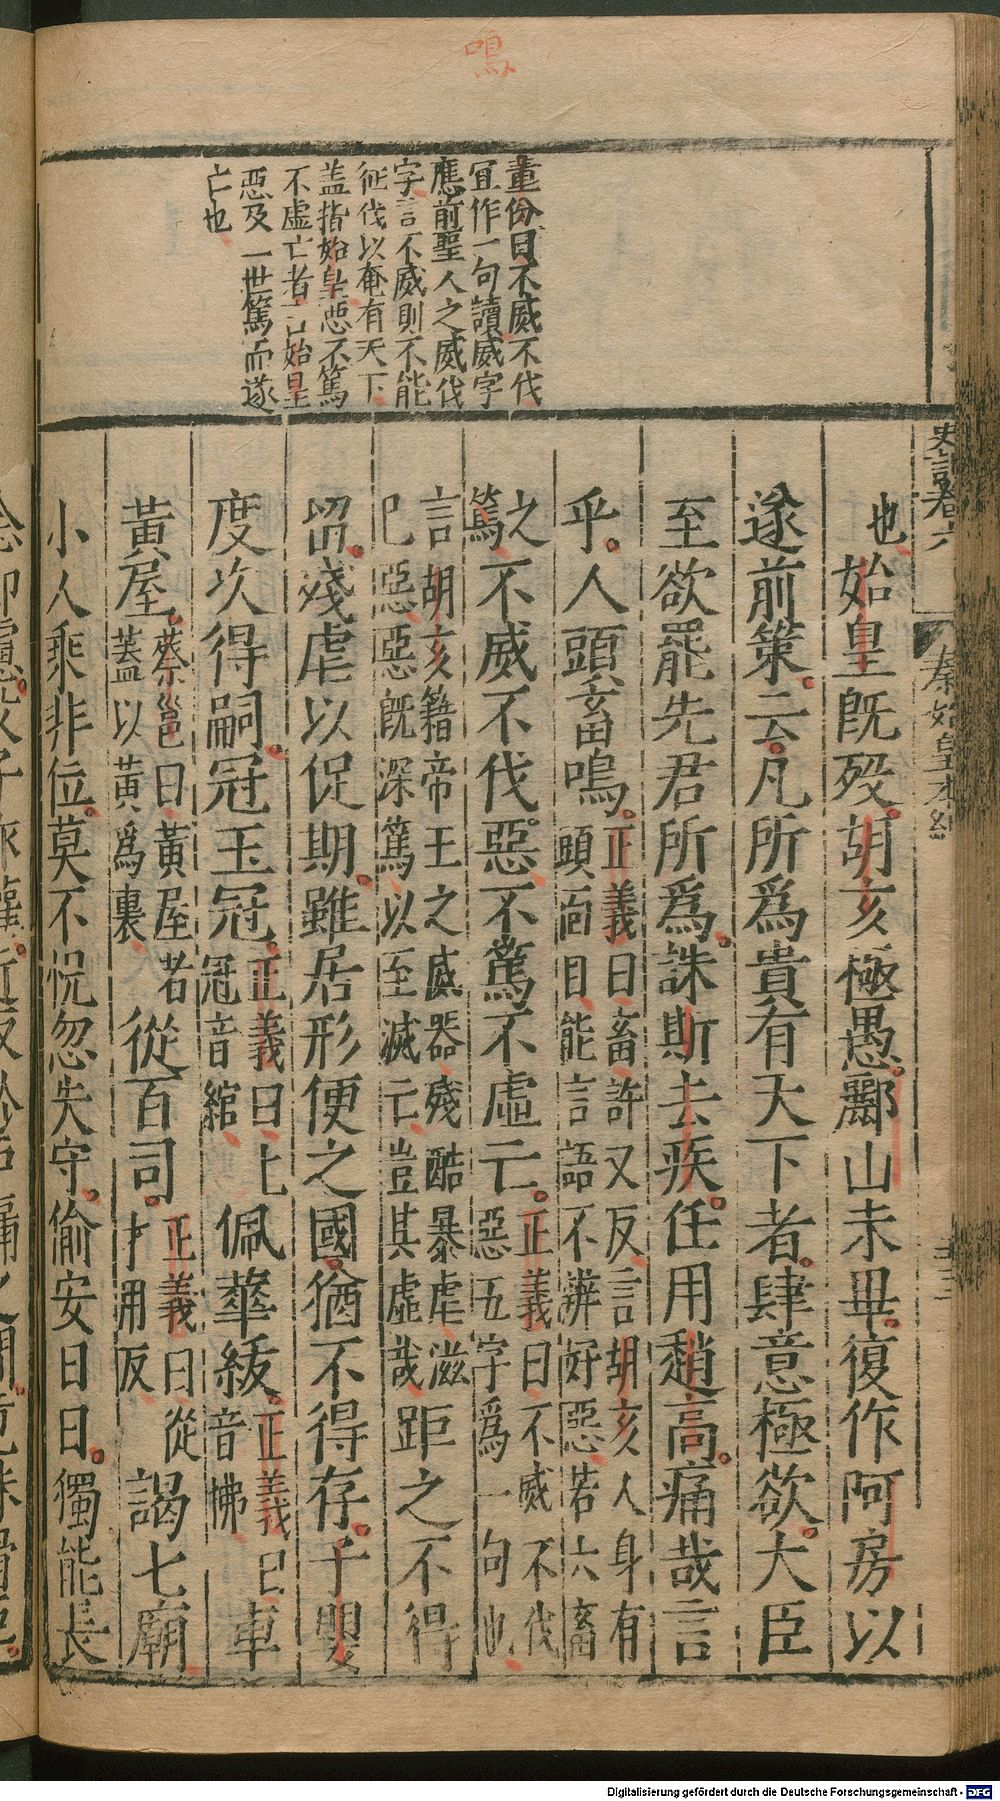 鳴
董份曰不威不伐
宜作一句讀威字
應前聖人之威伐
字言不威則不能
征伐以奄有天下
盖指始皇惡不篤
不虛亡者言始皇
惡及二世篤而遂
亡也
史記卷六
秦始皇本紀
也始皇既歿胡亥極愚酈山未畢復作阿房以
遂前策云凡所爲貴有天下者肆意極欲大臣
至欲罷先君所爲誅斯去疾任用趙高痛哉言
乎人頭畜鳴正義曰畜許又反言胡亥人身有
頭面目能言語不辨好惡若六畜
之
篤不威不伐惡不篤不虛亡正義曰不威不伐
惡五字爲一句也
言胡亥籍帝王之威器殘酷暴虐滋
己惡惡既深篤以至滅亡豈其虛哉距之不得
留殘虐以促期雖居形便之國猶不得存子嬰
度次得嗣冠玉冠正義曰上
冠音綰佩華紱正義曰
音拂車
黃屋蔡邕曰黃屋者
蓋以黃爲裏從百司正義曰從
才用反謁七廟
小人乘非位莫不怳忽失守偷安日日獨能長
Digitalisierung gefördert durch die Deutsche Forschungsgemeinschaft - DFG